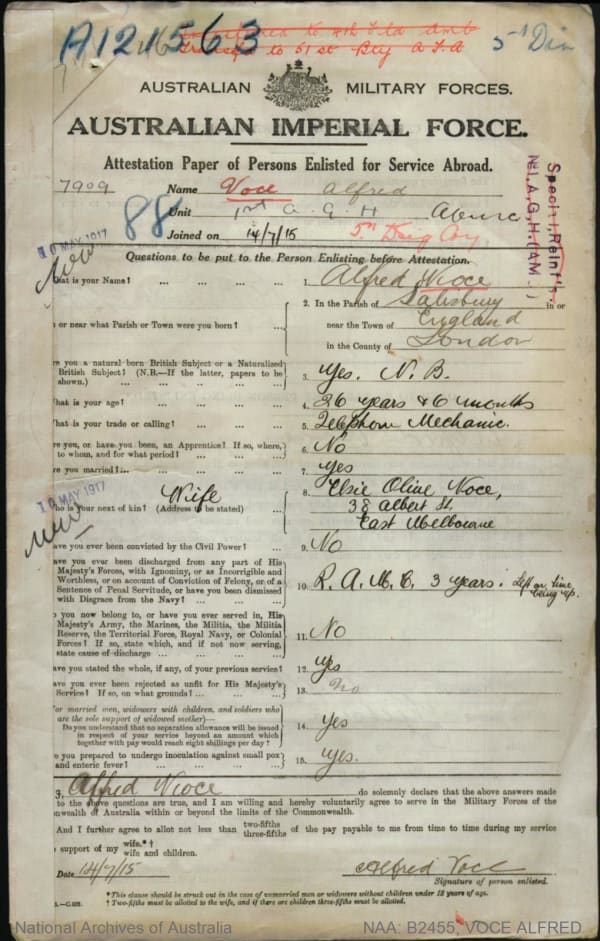 A121563
transferred to 4th Fld Amb
Transf to 51st Bty A F A
5th Div
AUSTRALIAN MILITARY FORCES.
AUSTRALIAN IMPERIAL FORCE.
Attestation Paper of Persons Enlisted for Service Abroad.
7909
Name Voce Alfred
Unit 1st A. G. H
Joined on 14/7/15
88
10 MAY 1917
Special Reint's.
N° 1, A, G, H, (AM. )
Questions to be put to the Person Enlisting before Attestation.
hat is your Name? ... ... ... ... 1. Alfred Voce
or near what Parish or Town were you born? ... 2. In the Parish of Salisbury in or
near the Town of England
in the County of London
re you a natural born British Subject or a Naturalized
British Subject? (N.B.—If the latter, papers to be
shown.) ... ... ... ... ... 3. Yes. N. B.
hat is your age? ... ... ... ... 4. 26 years & 6 months
hat is your trade or calling? ... ... ... 5. Telephone Mechanic.
re you, or have you been, an Apprentice? If so, where,
to whom, and for what period? ... ... ... 6. No
re you married?... ... ... ... ... 7. Yes
10 MAY 1917
Wife
ho is your next of kin? (Address to be stated) ... 8. Elsie Olive Voce,
38 Albert St.
East Melbourne
ave you ever been convicted by the Civil Power? ... 9. No
ave you ever been discharged from any part of His
Majesty's Forces, with Ignominy, or as Incorrigible and
Worthless, or on account of Conviction of Felony, or of a
Sentence of Penal Servitude, or have you been dismissed
with Disgrace from the Navy? ... ... ... 10. R. A. M. C. 3 years. Left on time
being up.
o you now belong to, or have you ever served in, His
Majesty's Army, the Marines, the Militia, the Militia
Reserve, the Territorial Force, Royal Navy, or Colonial
Forces? If so, state which, and if not now serving,
state cause of discharge ... ... ... ... 11. No
ave you stated the whole, if any, of your previous service? 12. yes
ave you ever been rejected as unfit for His Majesty's
Service? If so, on what grounds? ... ... ... 13. No
For married men, widowers with children, and soldiers who
are the sole support of widowed mother)—
Do you understand that no separation allowance will be issued
in respect of your service beyond an amount which
together with pay would reach eight shillings per day? 14. yes
re you prepared to undergo inoculation against small pox
and enteric fever? ... ... ... ... 15. yes.
I, Alfred Voce do solemnly declare that the above answers made
to the above questions are true, and I am willing and hereby voluntarily agree to serve in the Military Forces of the
nwealth of Australia within or beyond the limits of the Commonwealth.
And I further agree to allot not less than two-fifths three-fifths of the pay payable to me from time to time during my service
support of my wife.*† wife and children.
Date 14/7/15
Alfred Voce
Signature of person enlisted.
* This clause should be struck out in the case of unmarried men or widowers without children under 18 years of age.
† Two-fifths must be allotted to the wife, and if there are children three-fifths must be allotted.
National Archives of Australia
NAA: B2455, VOCE ALFRED